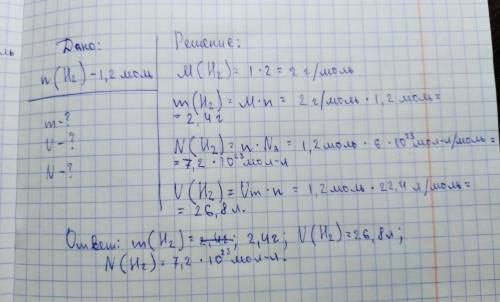 Дано:
n(H₂) - 1,2 моль
m-?
V-?
N-?
Решение:
M(H₂) = 1·2 = 2 г/моль
m(H₂) = M·n = 2 г/моль · 1,2 моль =
= 2,4 г
N(H₂) = n·Nₐ = 1,2 моль · 6·10²³ мол-л/моль =
= 7,2·10²³ мол-л.
V(H₂) = Vm·n = 1,2 моль · 22,4 л/моль =
= 26,8 л.
Ответ: m(H₂) = 2,4г; 2,4г; V(H₂) = 26,8 л;
N(H₂) = 7,2·10²³ мол-л.